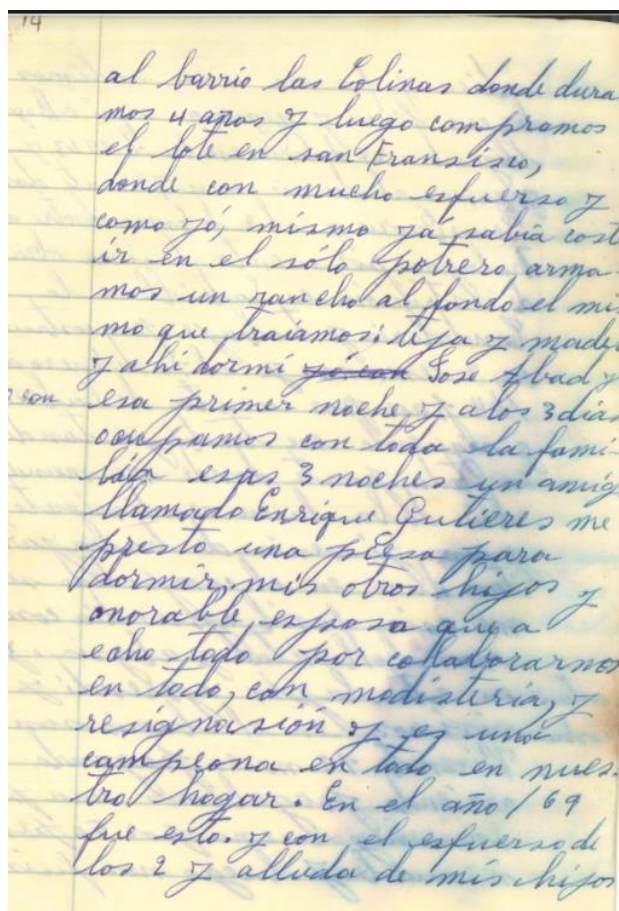 14
al barrio las Colinas donde dura
mos 4 años y luego compramos
el lote en san Fransisco,
donde con mucho esfuerso y
como yó, mismo yá sabia cost
ir en el sólo potrero arma
mos un rancho al fondo el mis
mo que traiamos: teja y made
y ahi dormi yó con Jose Abad y
con esa primer noche, y a los 3 dias
ocupamos con toda la fami-
lia esas 3 noches un amig
llamado Enrique Gutieres me
presto una piesa para
dormir, mis otros hijos y
onorable, esposa que a
echo todo por collaborarnos
en todo, con modisteria, y
resignasión y es una
campeona en todo en nues-
tro hogar. En el año /69
fue esto. y con el esfuerso de
los 2 y alluda de mis hijos